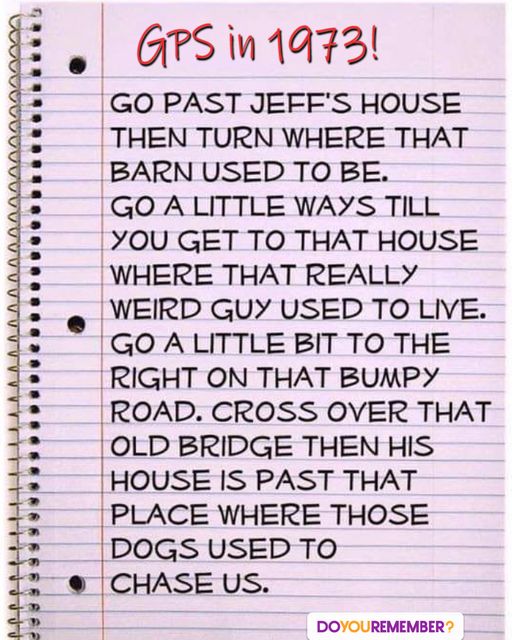 GPS in 1973!
GO PAST JEFF'S HOUSE
THEN TURN WHERE THAT
BARN USED TO BE.
GO A LITTLE WAYS TILL
YOU GET TO THAT HOUSE
WHERE THAT REALLY
WEIRD GUY USED TO LIVE.
GO A LITTLE BIT TO THE
RIGHT ON THAT BUMPY
ROAD. CROSS OVER THAT
OLD BRIDGE THEN HIS
HOUSE IS PAST THAT
PLACE WHERE THOSE
DOGS USED TO
CHASE US.
DOYOUREMEMBER?